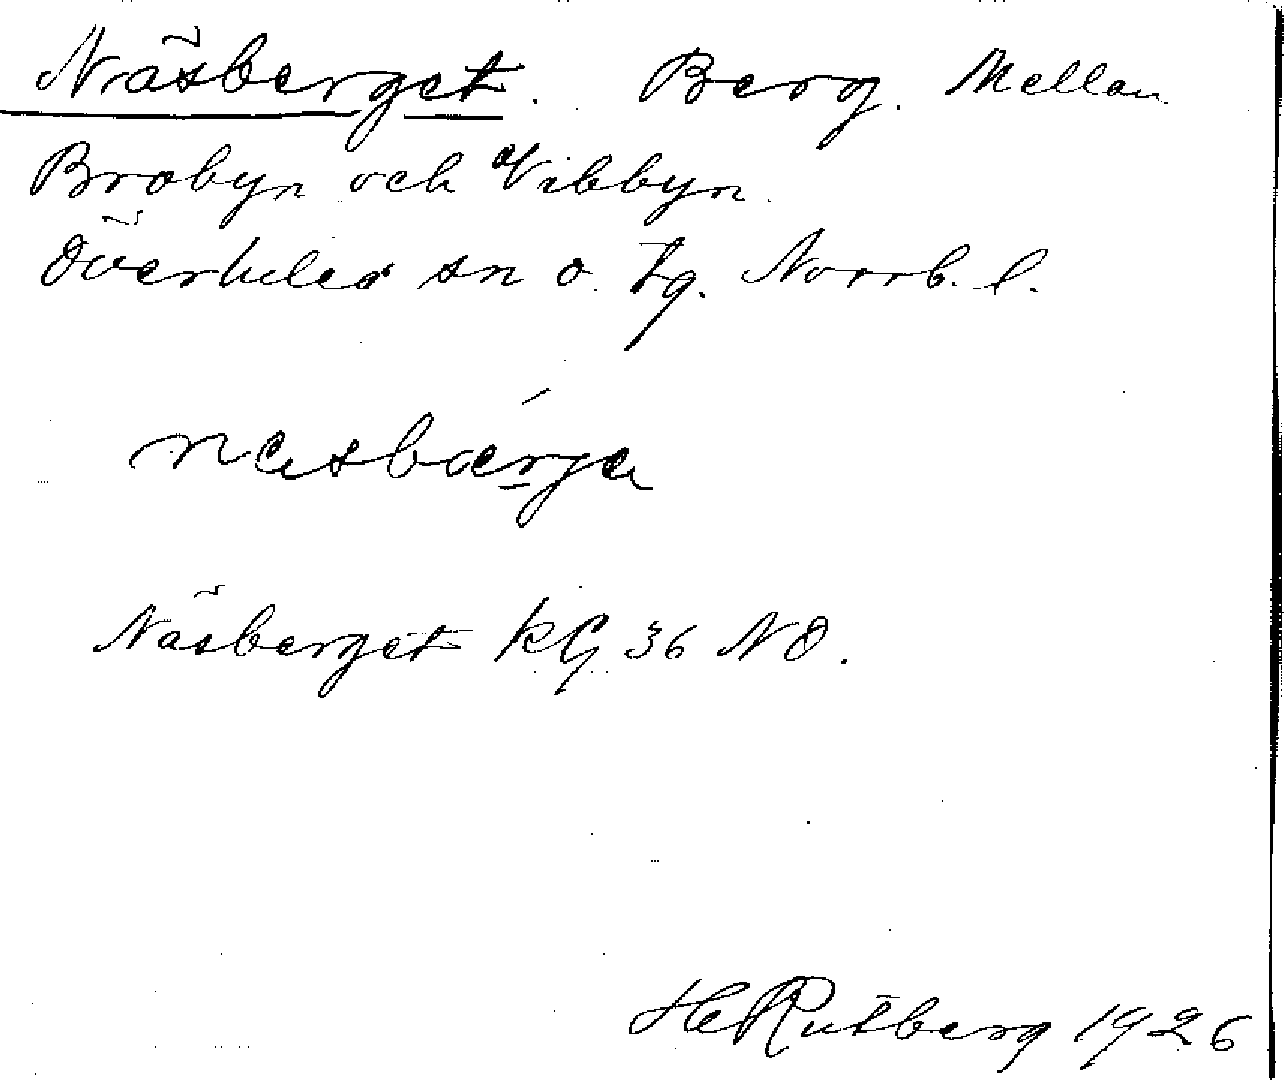 Näsberget. Berg. Mellan
Brobyn och Vibbyn.
Överkulex sn o. tg. Norrb. l.
næsbærja
Näsberget KG 36 NO.
H Rutberg 1926